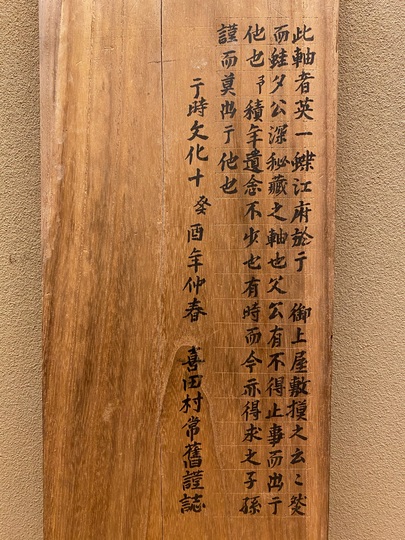 此軸者英一蝶江府於于　御上屋敷摸之云〻然
而蛙夕公深秘藏之軸也父公有不得止事而出于
他也予積年遺念不少也有時而今亦得求之子孫
謹而莫出于他也
于時文化十癸酉年仲春　喜田村常舊謹誌